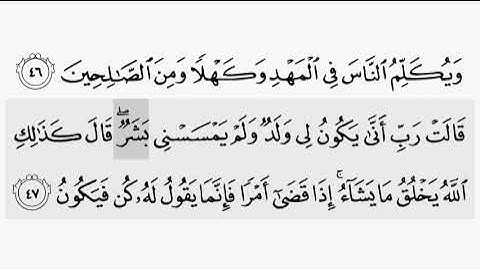 وَيُكَلِّمُ النَّاسَ فِي الْمَهْدِ وَكَهْلًا وَمِنَ الصَّٰلِحِينَ ٤٦
قَالَتْ رَبِّ أَنَّىٰ يَكُونُ لِي وَلَدٌ وَلَمْ يَمْسَسْنِي بَشَرٌۖ قَالَ كَذَٰلِكِ
اللَّهُ يَخْلُقُ مَا يَشَآءُۚ إِذَا قَضَىٰٓ أَمْرًا فَإِنَّمَا يَقُولُ لَهُۥ كُن فَيَكُونُ ٤٧